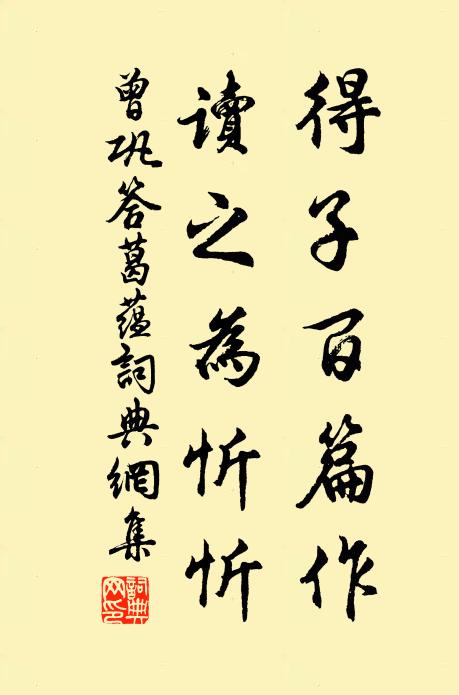 得子百篇作
讀之為忻忻
曾巩答葛蘊詞典網集
詞典網印